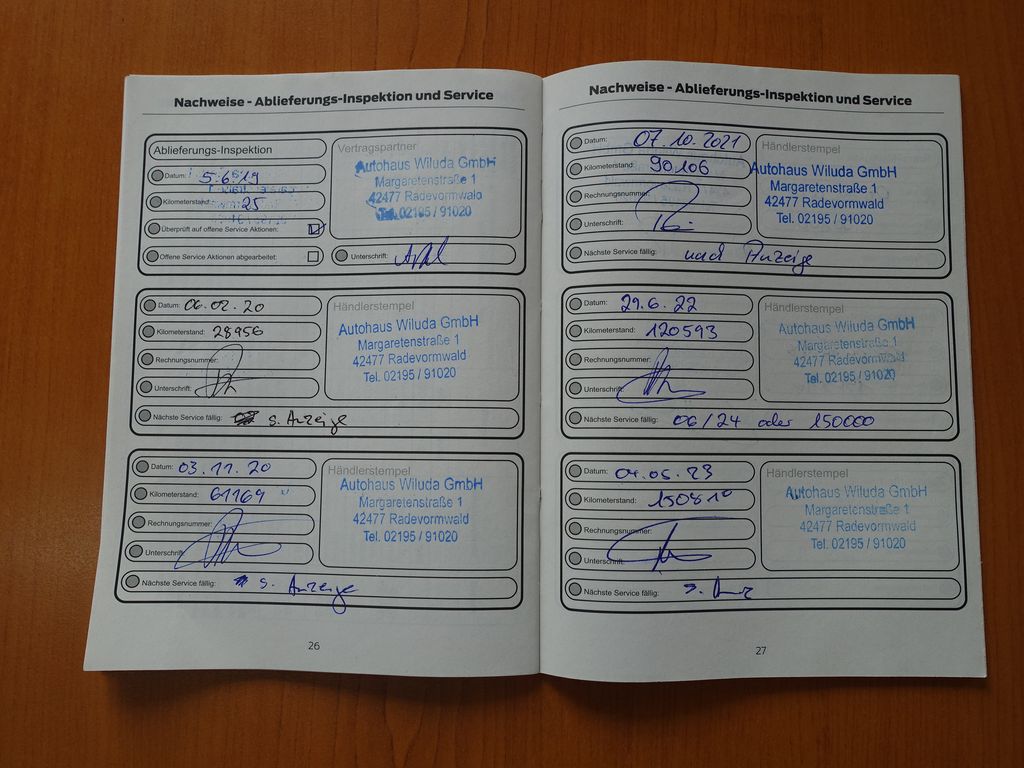 Nachweise - Ablieferungs-Inspektion und Service
Ablieferungs-Inspektion
Datum: 5.6.19
Kilometerstand: 25
Überprüft auf offene Service Aktionen:
Offene Service Aktionen abgearbeitet:
Vertragspartner
Autohaus Wiluda GmbH
Margaretenstraße 1
42477 Radevormwald
Tel. 02195 / 91020
Unterschrift:
Datum: 06.02.20
Kilometerstand: 28956
Rechnungsnummer:
Unterschrift:
Nächste Service fällig: s. Anzeige
Händlerstempel
Autohaus Wiluda GmbH
Margaretenstraße 1
42477 Radevormwald
Tel. 02195 / 91020
Datum: 03.11.20
Kilometerstand: 61169
Rechnungsnummer:
Unterschrift:
Nächste Service fällig: s. Anzeige
Händlerstempel
Autohaus Wiluda GmbH
Margaretenstraße 1
42477 Radevormwald
Tel. 02195 / 91020
26
Nachweise - Ablieferungs-Inspektion und Service
Datum: 07.10.2021
Kilometerstand: 90.106
Rechnungsnummer:
Unterschrift:
Nächste Service fällig: nach Anzeige
Händlerstempel
Autohaus Wiluda GmbH
Margaretenstraße 1
42477 Radevormwald
Tel. 02195 / 91020
Datum: 29.6.22
Kilometerstand: 120593
Rechnungsnummer:
Unterschrift:
Nächste Service fällig: 06/24 oder 150000
Händlerstempel
Autohaus Wiluda GmbH
Margaretenstraße 1
42477 Radevormwald
Tel. 02195 / 91020
Datum: 04.05.23
Kilometerstand: 150810
Rechnungsnummer:
Unterschrift:
Nächste Service fällig: s.
Händlerstempel
Autohaus Wiluda GmbH
Margaretenstraße 1
42477 Radevormwald
Tel. 02195 / 91020
27